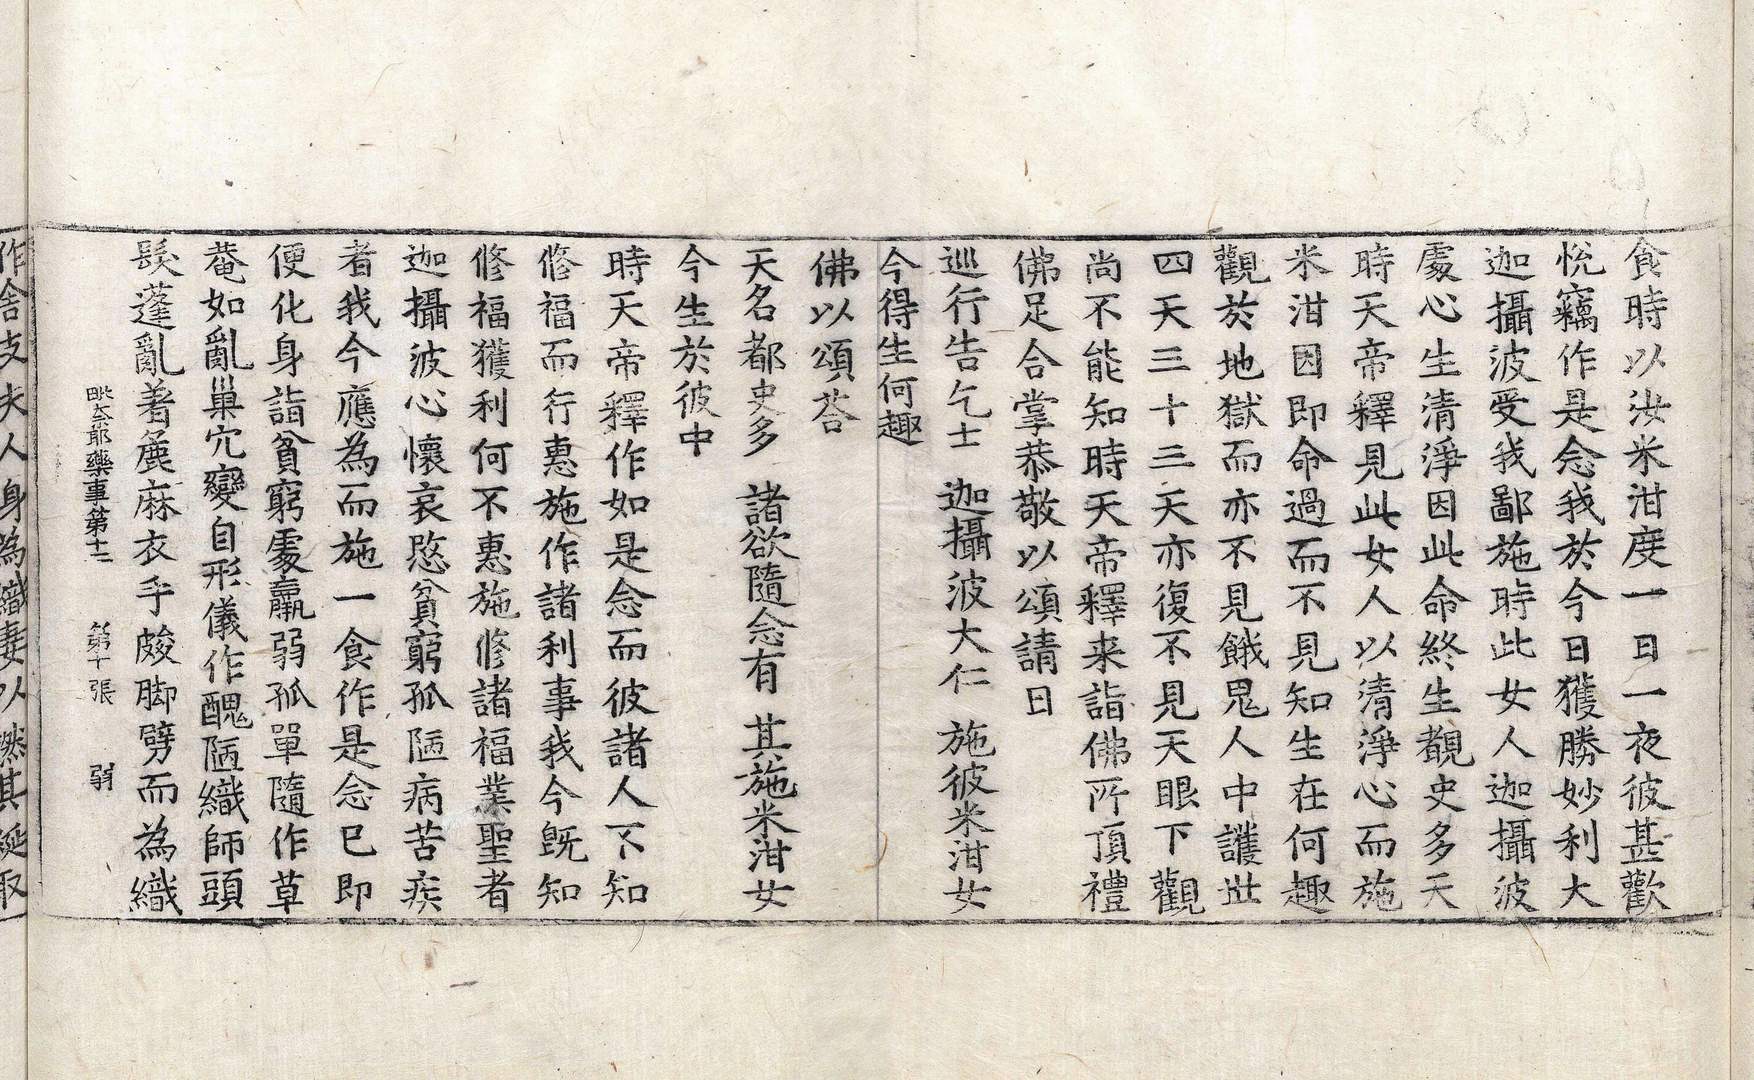 食時以汝米泔度一日一夜彼甚歡
悅竊作是念我於今日獲勝妙利大
迦攝波受我鄙施時此女人迦攝波
處心生清淨因此命終生覩史多天
時天帝釋見此女人以清淨心而施
米泔因即命過而不見知生在何趣
觀於地獄而亦不見餓鬼人中護世
四天三十三天亦復不見天眼下觀
尚不能知時天帝釋来詣佛所頂禮
佛足合掌恭敬以頌請曰
巡行告乞士　迦攝波大仁　施彼米泔女
今得生何趣
佛以頌荅
天名都史多　諸欲隨念有　其施米泔女
今生於彼中
時天帝釋作如是念而彼諸人不知
俻福而行惠施作諸利事我今既知
修福獲利何不惠施修諸福業聖者
迦攝波心懷哀愍貧窮孤陋病苦疾
者我今應為而施一食作是念已即
便化身詣貧窮處羸弱孤單隨作草
菴如亂巢穴變自形儀作醜陋織師頭
髮蓬亂著麁麻衣手皴脚劈而為織
毗奈耶藥事第十二　第十張　弱
作舍支夫人身為織妻以撚其綖取